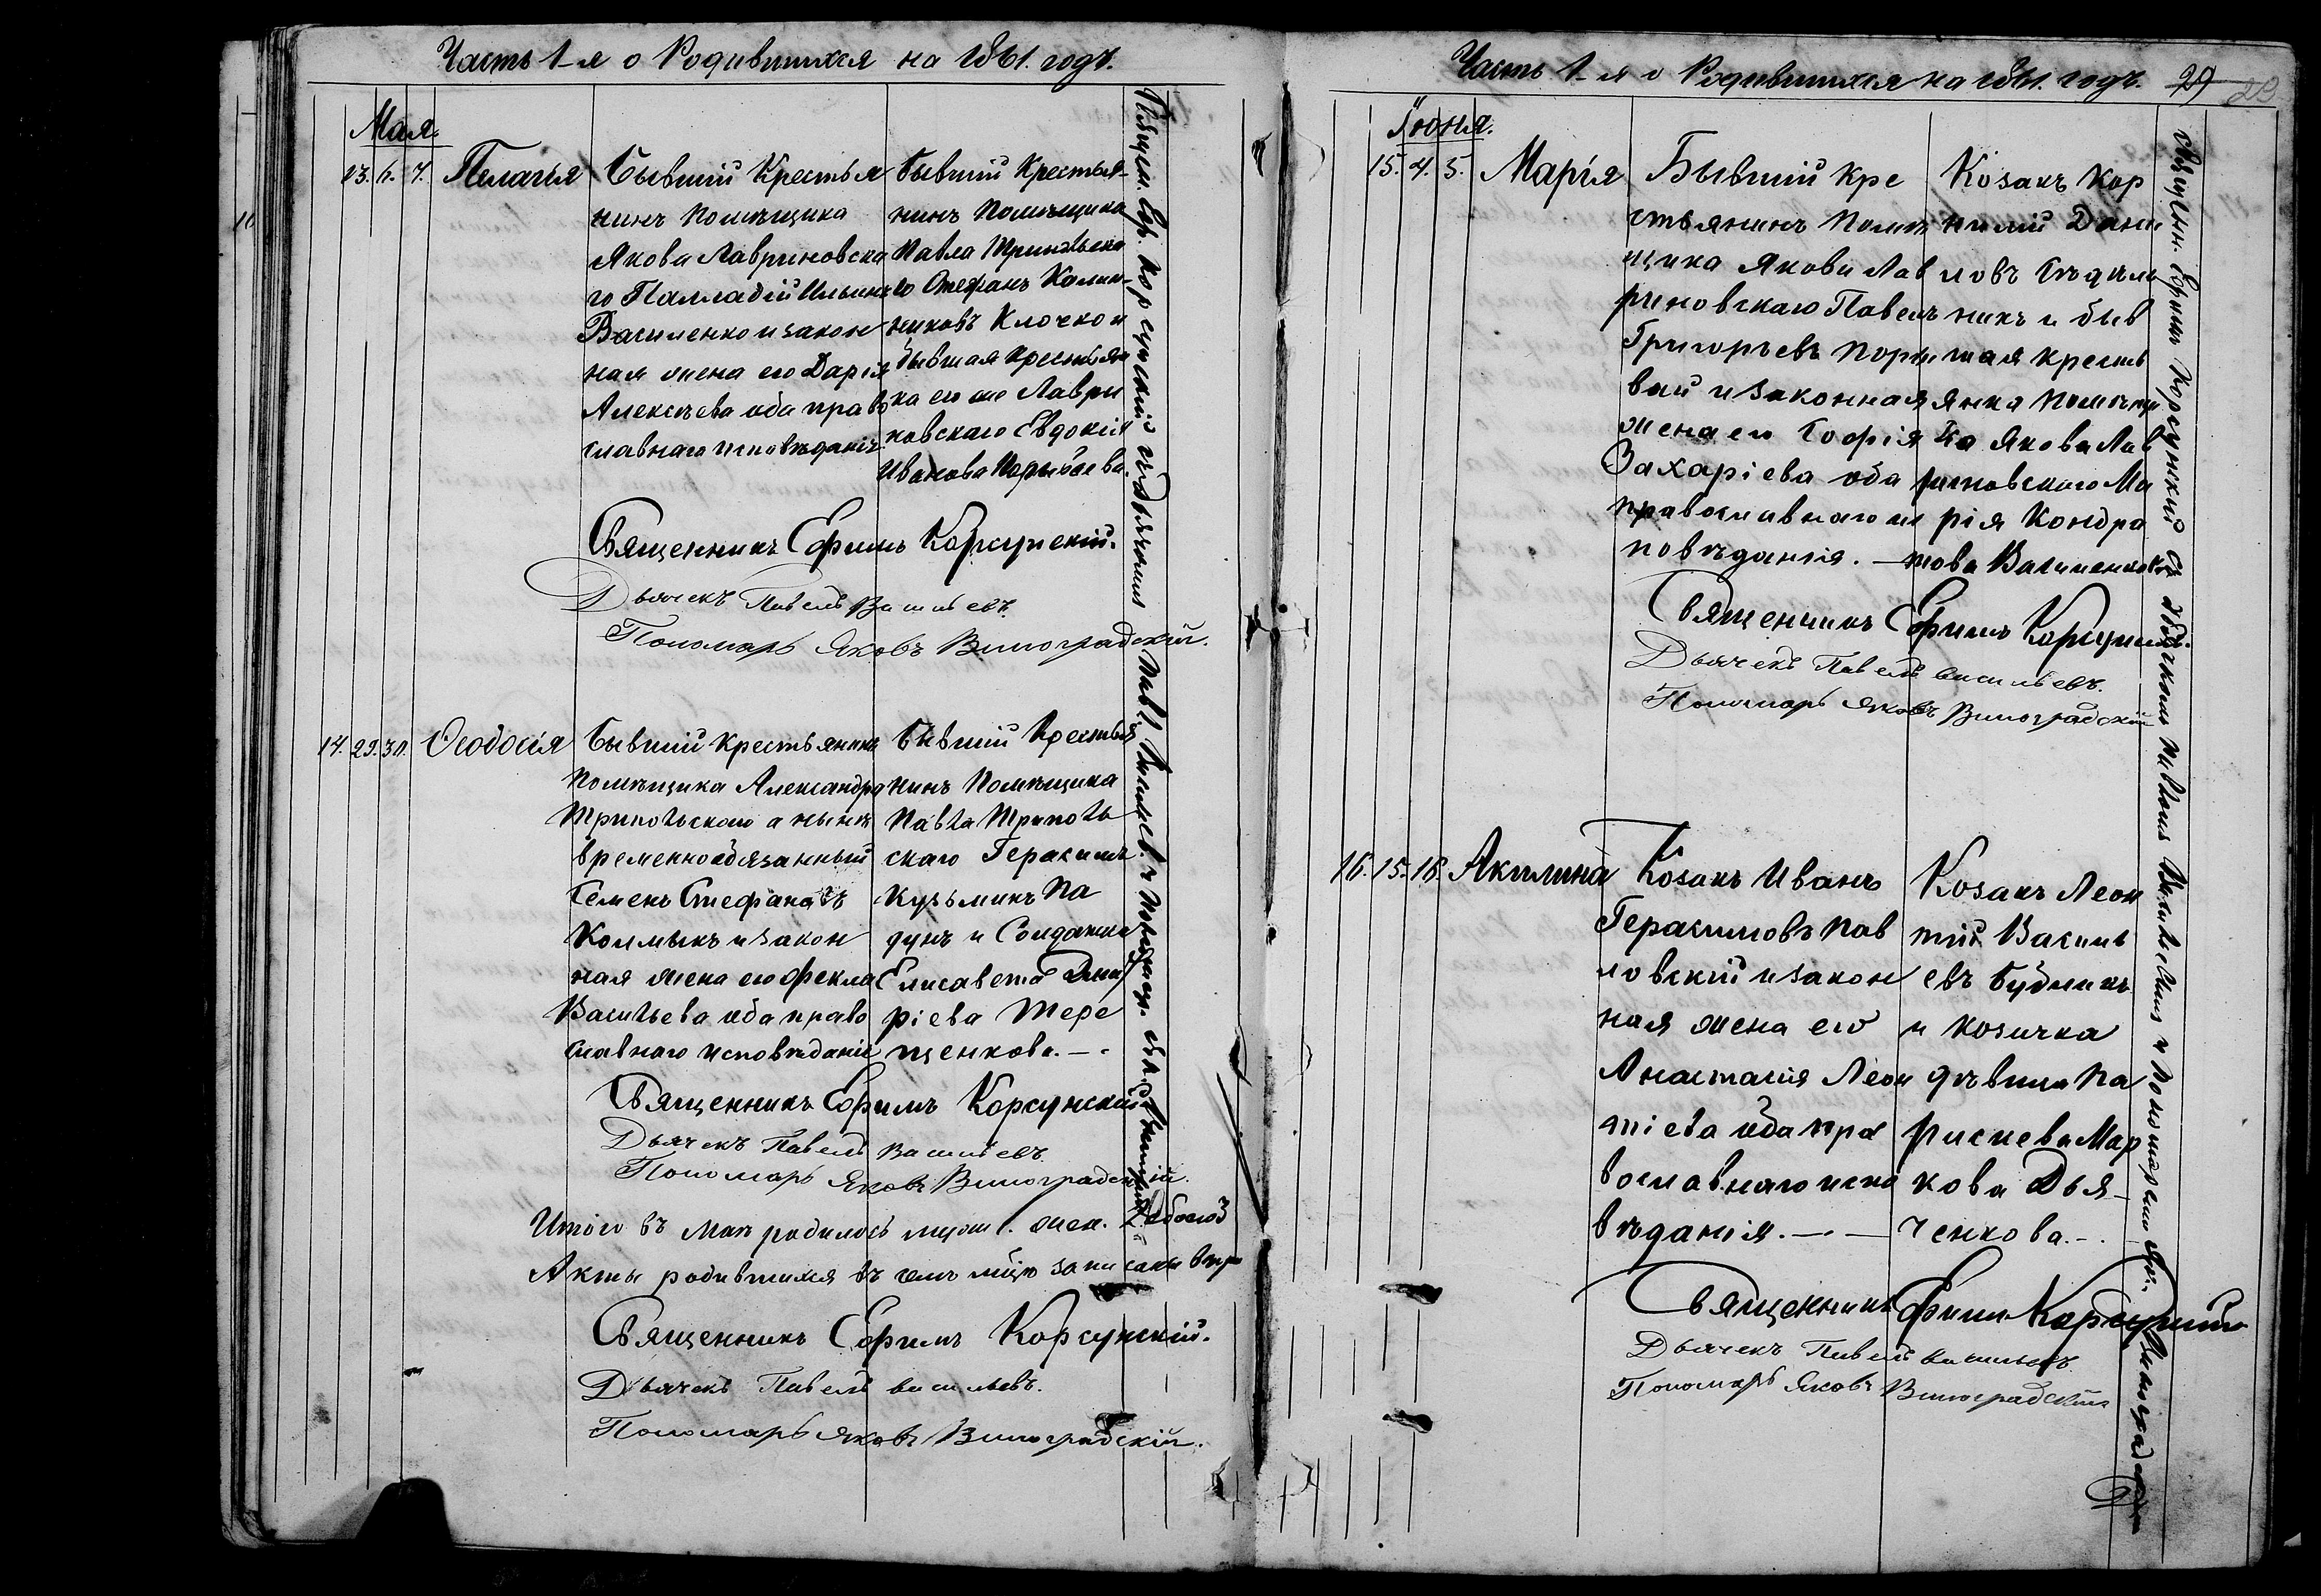 Часть 1-я о Родившихся на 1861. годъ.
Мая.
13. 6. 7. Пелагія
Бывшій Крестья
нинъ Помѣщика
Якова Лавриновска
го Палладій Ильинъ
Василенко и закон
ная жена его Дарія
Алексѣева оба право
славнаго исповѣданія
Бывшій Крестья-
нинъ Помѣщика
Павла Трипольска
го Стефанъ Калин-
никовъ Клочко и
бывшая крестьян
ка его же Лаври
новскаго Евдокія
Иванова
Священникъ Ефимъ Корсунскій.
Дьячекъ Павелъ Васильевъ.
Пономарь Яковъ Виноградскій.
14. 29. 30. Ѳеодосія
Бывшій крестьянинъ
Помѣщика Александра
Трипольскаго а нынѣ
временнообязанный
Семенъ Стефановъ
Колмыкъ и закон
ная жена его Фекла
Васильева оба право
славнаго исповѣданія
Бывшій Крестья
нинъ Помѣщика
Павла Триполь
скаго Герасимъ
Кузьминъ Па
дунъ и Солдатка
Елисавета Дмит
ріева Тере
щенкова. —
Священникъ Ефимъ Корсунскій
Дьячекъ Павелъ Васильевъ.
Пономарь Яковъ Виноградскій.
Итого въ Маѣ родилось муж. 1. жен. 2.
Акты родившихся въ семъ мѣсяцѣ записаны вѣр
Священникъ Ефимъ Корсунскій.
Дьячекъ Павелъ Васильевъ.
Пономарь Яковъ Виноградскій.
Часть 1-я о Родившихся на 1861. годъ. 29 29
Іюня.
15. 4. 5. Марія
Бывшій Кре
стьянинъ Помѣ
щика Якова Лав
риновскаго Павелъ
Григорьевъ
вай и законная
жена его Софія
Захаріева оба
православнаго ис
повѣданія. —
Козакъ Кор
нилій Дани
ловъ
никъ и быв
шая кресть
янка Помѣщи
ка Якова Лав
риновскаго Ма
рія Кондра
това Василенкова
Священникъ Ефимъ Корсунскій.
Дьячекъ Павелъ Васильевъ.
Пономарь Яковъ Виноградскій
16. 15. 16. Акилина
Козакъ Иванъ
Герасимовъ Пав
ловскій и закон
ная жена его
Анастасія Леон
тіева оба пра
вославнаго испо
вѣданія. —
Козакъ Леон
тій Василь
евъ Будникъ
и козачка
дѣвица Па
раскева Мар
кова Дья-
ченкова. —
Священникъ Ефимъ Корсунскій
Дьячекъ Павелъ Васильевъ
Пономарь Яковъ Виноградскій